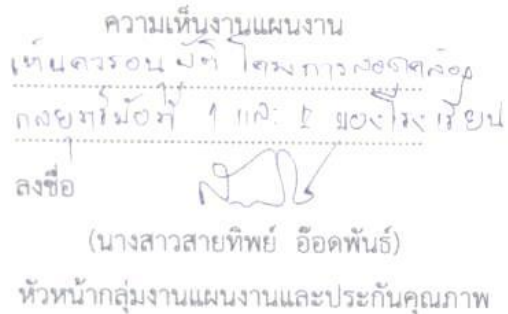 ความเห็นงานแผนงาน
เห็นควรอนุมัติ โครงการสอดคล้อง
กลยุทธ์ข้อที่ 1 และ ของโรงเรียน
ลงชื่อ
(นางสาวสายทิพย์ อ๊อดพันธ์)
หัวหน้ากลุ่มงานแผนงานและประกันคุณภาพ